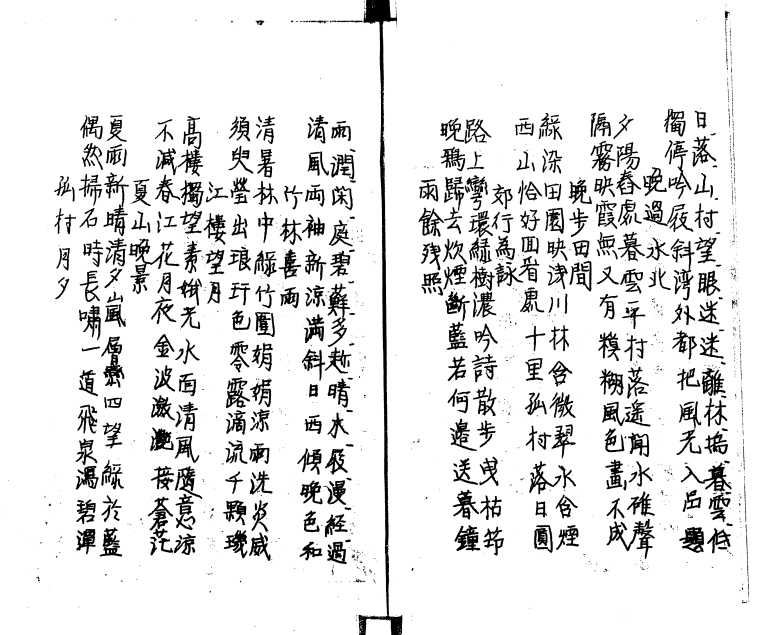 日落山村望眼迷迷離林塢暮雲低
獨停吟屐斜灣外都把風光入品題
晚過水北
夕陽舂處暮雲平村落遙聞水碓聲
隔霧映霞無又有糢糊風色畫不成
晚步田間
綠染田園映淺川林含微翠水含煙
西山恰好回看處十里孤村落日圓
郊行為詠
路上彎環綠樹濃吟詩散步曳枯筇
晚鴉歸去炊煙斷藍若何邊送暮鐘
雨餘殘照
雨潤閑庭碧蘚多趁晴水屐漫經過
清風兩袖新涼滿斜日西傾晚色和
竹林喜雨
清暑林中綠竹圍娟娟涼雨洗炎威
須臾瑩出琅玕色零露滴流千顆璣
江樓望月
高樓獨望素娥光水面清風隨意涼
不減春江花月夜金波激灩接蒼茫
夏山晚景
夏雨新晴清夕嵐層巒四望綠於藍
偶然掃石時長嘯一道飛泉瀉碧潭
孤村月夕